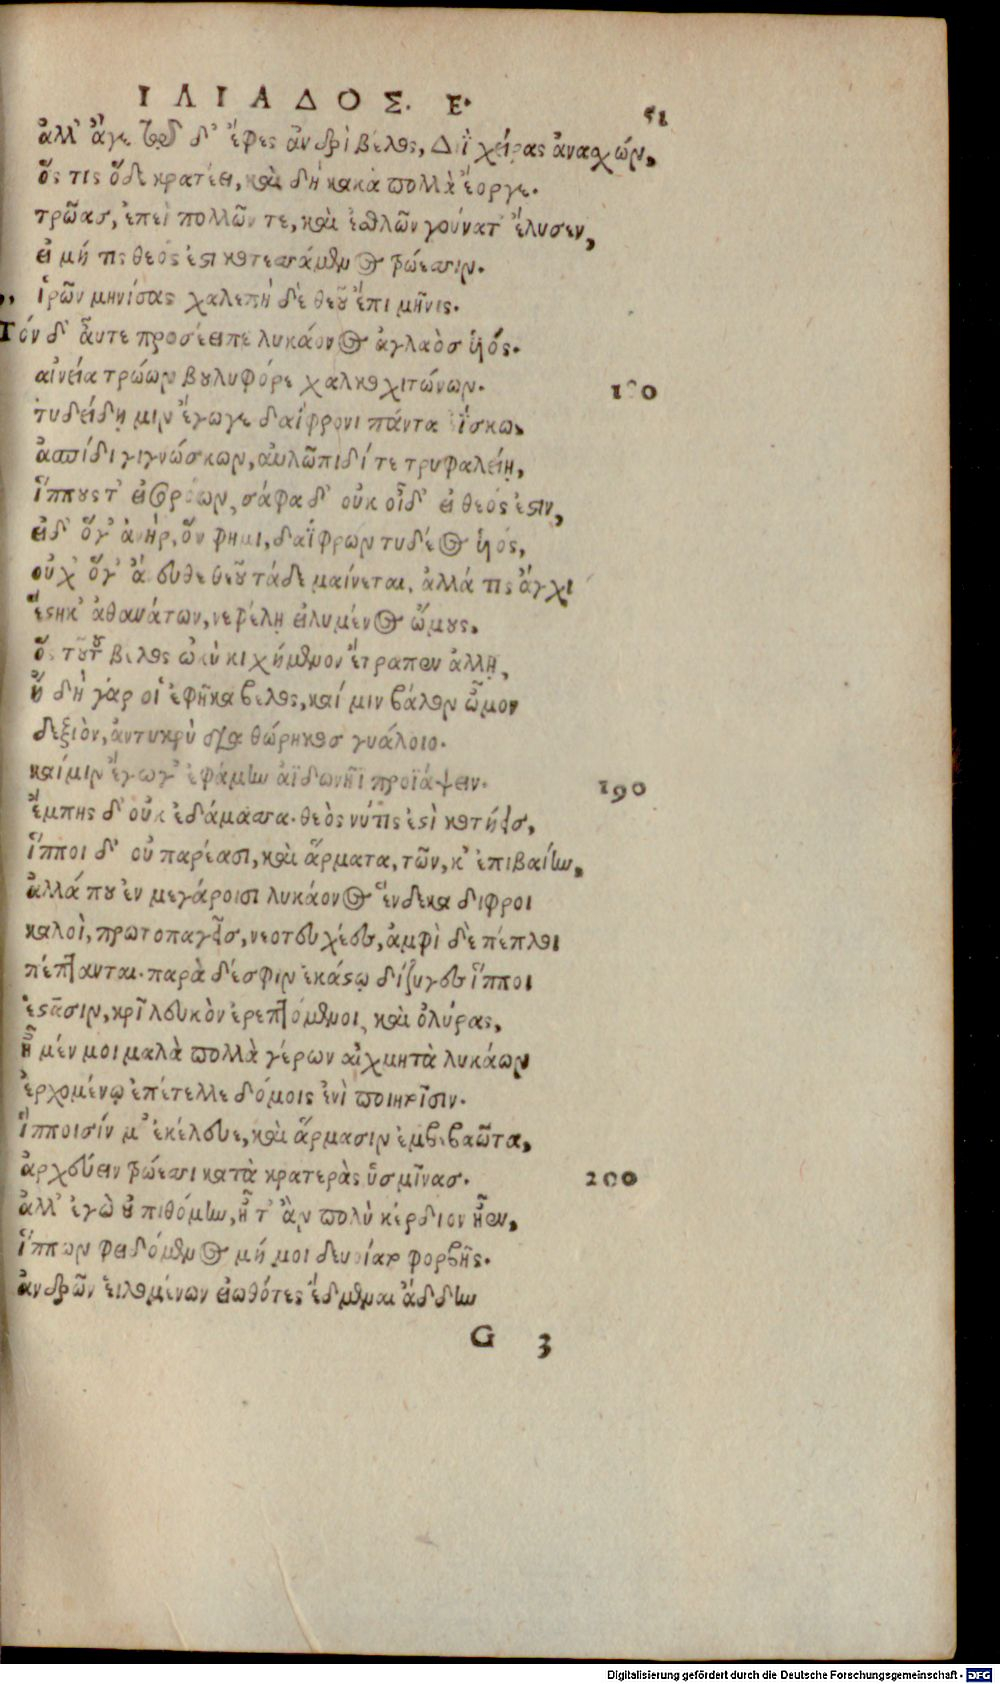 ΙΛΙΑΔΟΣ. Ε.
51
ἀλλ' ἄγε τῷδ' ἔφες ἀνδρὶ βέλος, Διῒ χεῖρας ἀνασχών,
ὅς τις ὅδε κρατέει, καὶ δὴ κακὰ πολλὰ ἔοργε.
τρῶας, ἐπεὶ πολλῶν τε, καὶ ἐσθλῶν γούνατ' ἔλυσεν,
εἰ μή τις θεός ἐστι κοτεσσάμενος τρώεσσιν.
ἱρῶν μηνίσας χαλεπὴ δὲ θεοῦ ἔπι μῆνις.
Τόν δ' αὖτε προσέειπε λυκάονος ἀγλαὸς ὑιός.
αἰνεία τρώων βουλυφόρε χαλκοχιτώνων.
180
τυδείδῃ μιν ἔγωγε δαΐφρονι πάντα ἐΐσκω.
ἀσπίδι γιγνώσκων, αὐλώπιδί τε τρυφαλείῃ,
ἵππους τ' εἰσορόων, σάφα δ' οὐκ οἶδ' εἰ θεός ἐστιν,
εἰ δ' ὅγ' ἀνὴρ, ὅν φημι, δαΐφρων τυδέος ὑιός,
οὐχ ὅγ' ἄνευθε θεοῦ τάδε μαίνεται, ἀλλά τις ἄγχι
ἕστηκ' ἀθανάτων, νεφέλῃ εἰλυμένος ὤμους.
ὃς τούτου βέλος ὠκὺ κιχήμενον ἔτραπεν ἄλλῃ,
ἤδη γάρ οἱ ἐφῆκα βέλος, καί μιν βάλον ὦμον
δεξιὸν, ἀντυκρὺ διὰ θώρηκος γυάλοιο.
καί μιν ἔγωγ' ἐφάμην ἀϊδωνῆϊ προϊάψειν.
190
ἔμπης δ' οὐκ ἐδάμασσα. θεὸς νύ τις ἐστὶ κοτήεις,
ἵπποι δ' οὐ παρέασι, καὶ ἅρματα, τῶν, κ' ἐπιβαίην,
ἀλλά που ἐν μεγάροισι λυκάονος ἕνδεκα δίφροι
καλοὶ, πρωτοπαγεῖς, νεοτευχέες, ἀμφὶ δὲ πέπλοι
πέπτανται. παρὰ δέσφιν ἑκάστῳ δίζυγες ἵπποι
ἑστᾶσιν, κρῖ λευκὸν ἐρεπτόμενοι, καὶ ὀλύρας,
ἦ μέν μοι μαλὰ πολλὰ γέρων αἰχμητὰ λυκάων
ἐρχομένῳ ἐπέτελλε δόμοις ἐνὶ ποιητοῖσιν.
ἵπποισίν μ' ἐκέλευε, καὶ ἅρμασιν ἐμβεβαῶτα,
ἀρχεύειν τρώεσσι κατὰ κρατερὰς ὑσμῖνας.
200
ἀλλ' ἐγὼ οὐ πιθόμην, ἦ τ' ἂν πολὺ κέρδιον ἦεν,
ἵππων φειδόμενος μή μοι δευοίατο φορβῆς.
ἀνδρῶν εἰλομένων εἰωθότες ἔδμεναι ἄδδην
G 3
Digitalisierung gefördert durch die Deutsche Forschungsgemeinschaft - DFG